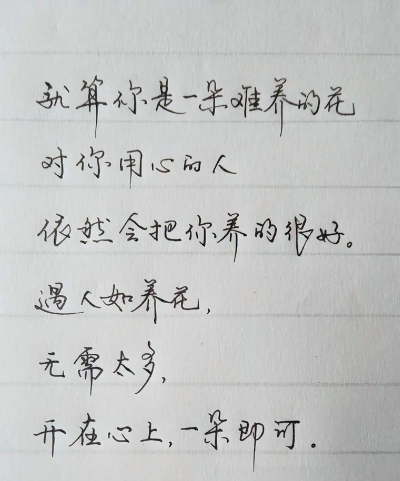 就算你是一朵难养的花
对你用心的人
依然会把你养的很好。
遇人如养花，
无需太多，
开在心上，一朵即可．